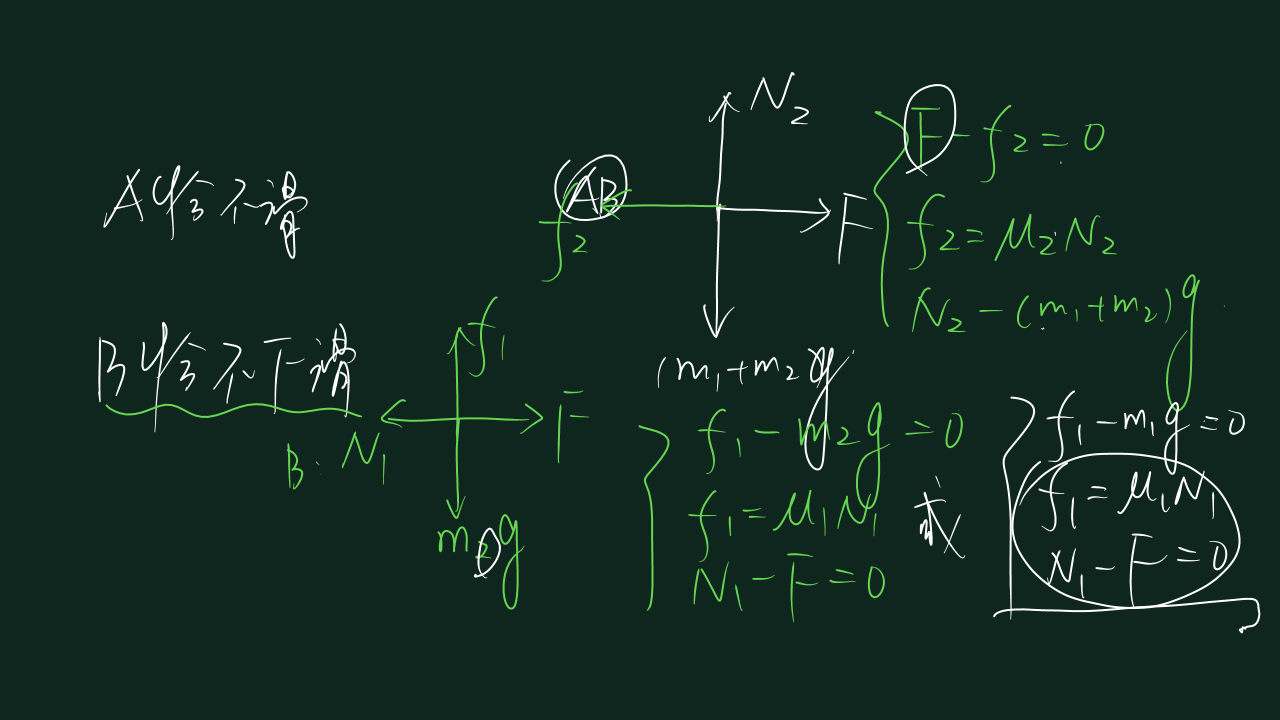 A恰不滑
B恰不下滑
AB
f₂
N₂
F
(m₁+m₂)g
F-f₂=0
f₂=μ₂N₂
N₂-(m₁+m₂)g
B: N₁
f₁
F
m₂g
f₁-m₂g=0
f₁=μ₁N₁
N₁-F=0
或
f₁-m₁g=0
f₁=μ₁N₁
N₁-F=0